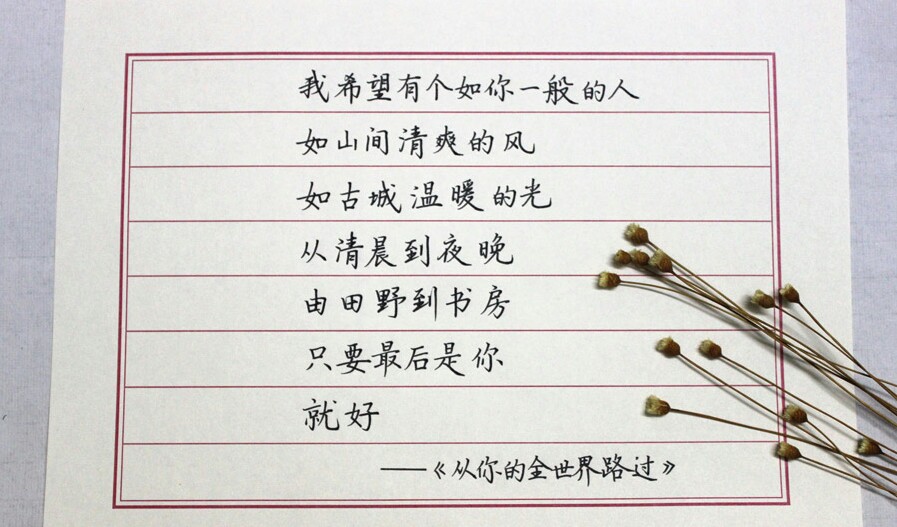 我希望有个如你一般的人
如山间清爽的风
如古城温暖的光
从清晨到夜晚
由田野到书房
只要最后是你
就好
——《从你的全世界路过》